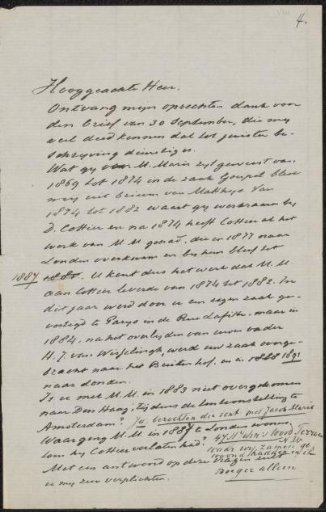 4.
Hooggeachte Heer.
Ontvang mijn oprechten dank voor
den brief van 30 September, die mij
veel deed kennen dat tot juister be-
schrijving dienstig is.
Wat gij van M. Maris zijt geweest van
1869 tot 1874 in de zaak Goupil bleek
mij uit brieven van Matthijs Van
1874 tot 1882 waart gij werkzaam bij
D. Cottier en na 1874 heeft Cottier al het
werk van M. M. gehad, die in 1877 naar
Londen overkwam en bij hem bleef tot
1887 U kent dus het werk dat M. M
aan Cottier leverde van 1874 tot 1882. In
dit jaar werd door u een eigen zaak ge-
vestigd te Parijs in de Rue Lafitte, maar in
1884, na het overlijden van uwen vader
H. J. van Wisselingh, werd uw zaak overge-
bracht naar het Buitenhof, en in 1891
naar Londen.
Is u met M. M. in 1883 niet overgekomen
naar Den Haag, tijdens de tentoonstelling te
Amsterdam? Ja,
Waar ging M. M in 1887 te Londen wonen,
toen hij Cottier verlaten had?
Met een antwoord op deze vragen zoudt
u mij zeer verplichten.